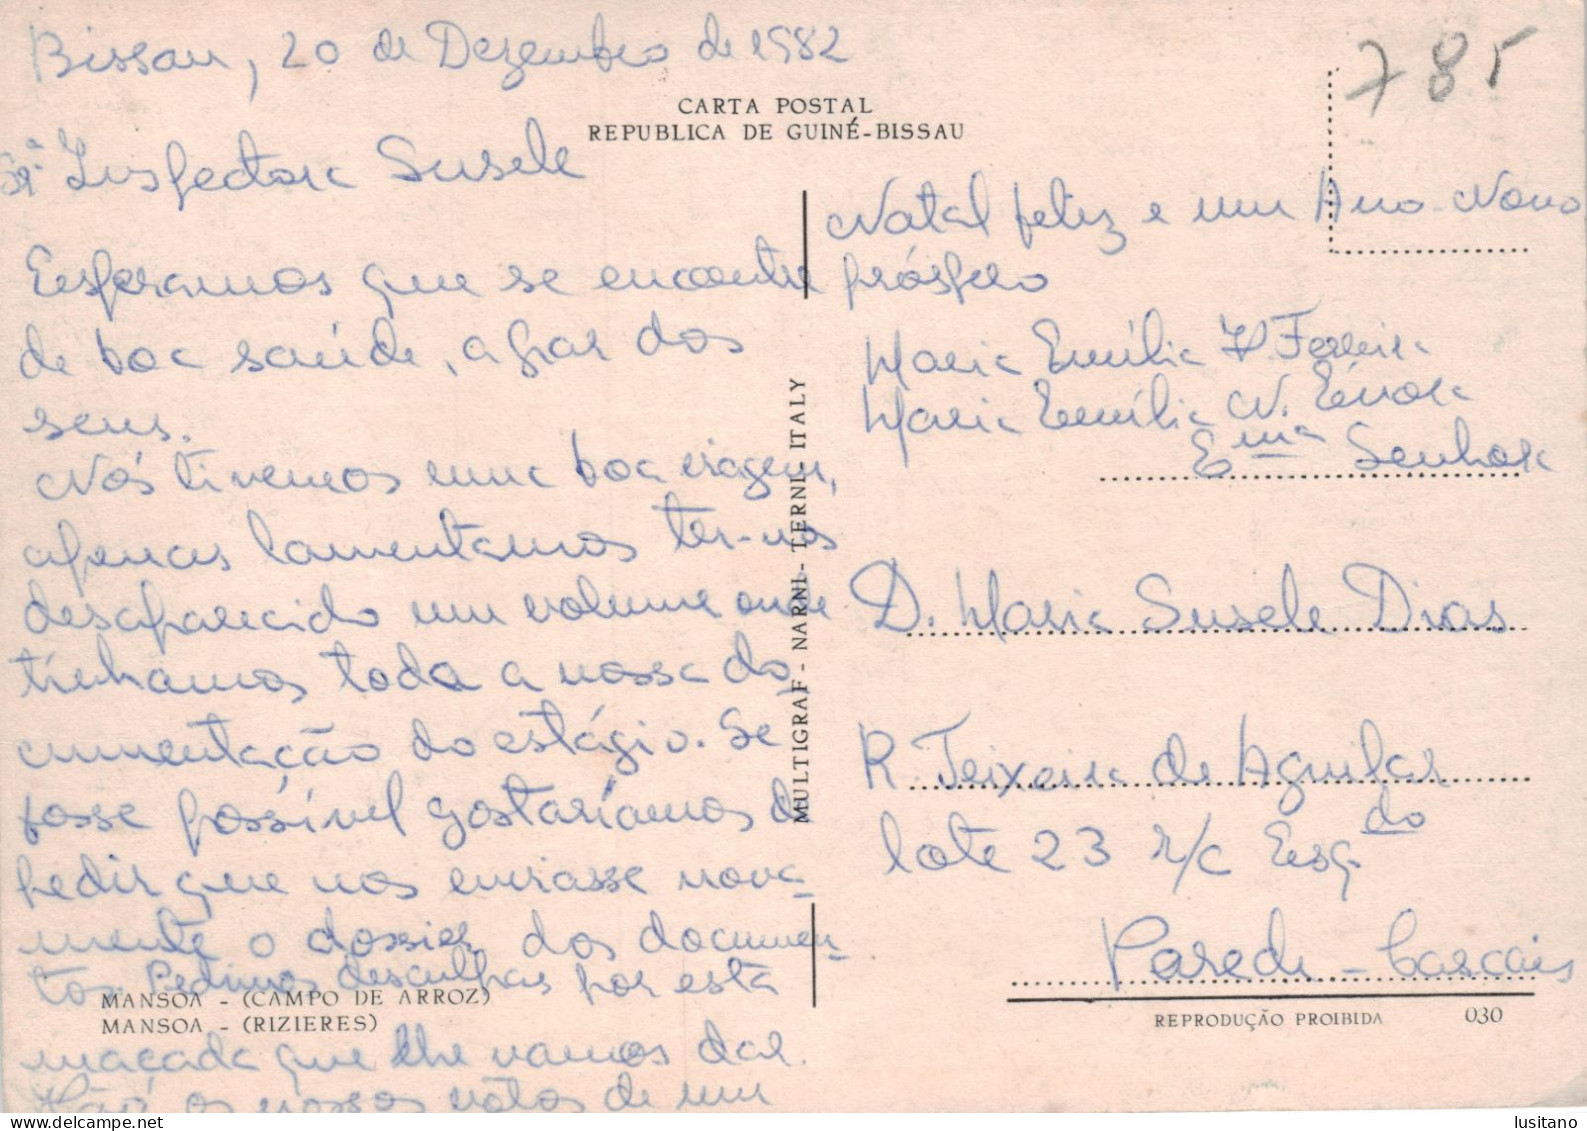 Bissau, 20 de Dezembro de 1982
785
CARTA POSTAL
REPUBLICA DE GUINÉ-BISSAU
Srª Inspectora Susele
Esperamos que se encontre
de boa saúde, a par dos
seus.
Nós tivemos uma boa viagem,
apenas lamentamos ter-nos
desaparecido um volume onde
tínhamos toda a nossa do
cumentação do estágio. Se
fosse possível gostaríamos de
pedir que nos enviasse nova-
mente o dossier dos documen-
tos. Pedimos desculpas por esta
maçada que lhe vamos dar.
os nossos votos de um
Natal feliz e um Ano Novo
próspero
Maria Emília Ferreira
Maria Emília N.
Ema Senhora
D. Maria Susele Dias
R Teixeira de Aguilar
lote 23 r/c Esqdo
Parede - Cascais
MULTIGRAF - NARNI - TERNI - ITALY
MANSOA - (CAMPO DE ARROZ)
MANSOA - (RIZIERES)
REPRODUÇÃO PROIBIDA 030
lusitano